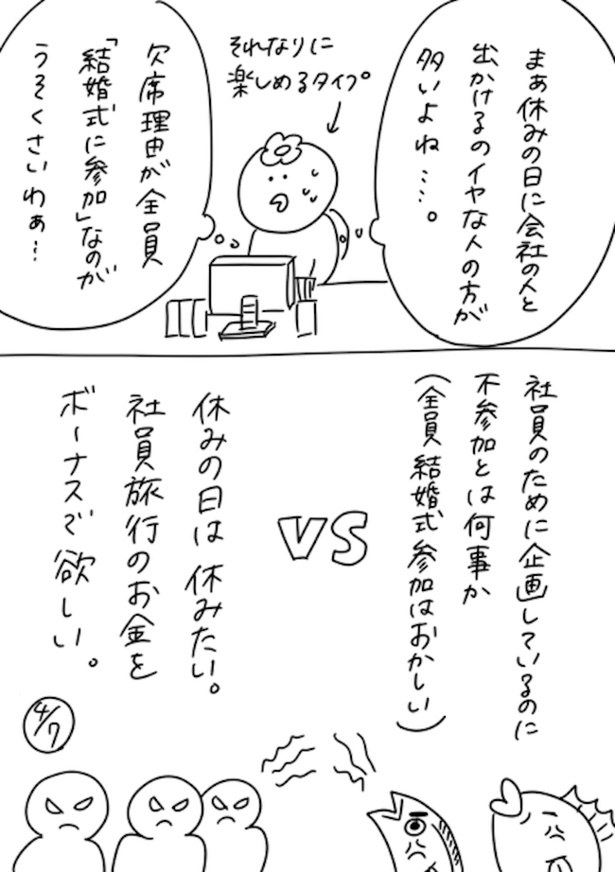 まぁ休みの日に会社の人と
出かけるのイヤな人の方が
多いよね…。
それなりに
楽しめるタイプ。
欠席理由が全員
「結婚式に参加」なのが
うそくさいわぁ…
社員のために企画しているのに
不参加とは何事か
(全員結婚式参加はおかしい)
VS
休みの日は休みたい。
社員旅行のお金を
ボーナスで欲しい。
4/7